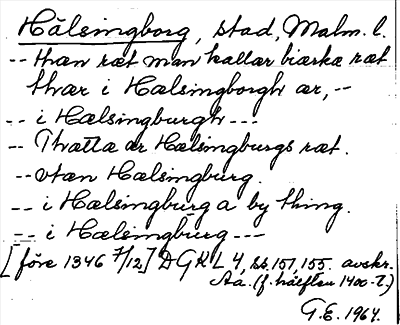 Hälsingborg, stad, Malm. l.
-- thæn ræt man kallar biærkæ ræt
thær i Hælsingborgh ær, --
-- i Hælsingburgh ---
-- Thættæ ær Hælsingburgs ræt.
-- vtæn Hælsingburg.
-- i Hælsingburg a by thing.
-- i Hælsingburg ---
[före 1346 7/12] DGKL 4, ss. 151, 155. avskr.
Aa. (f. hälften 1400-t.)
G.E. 1964.